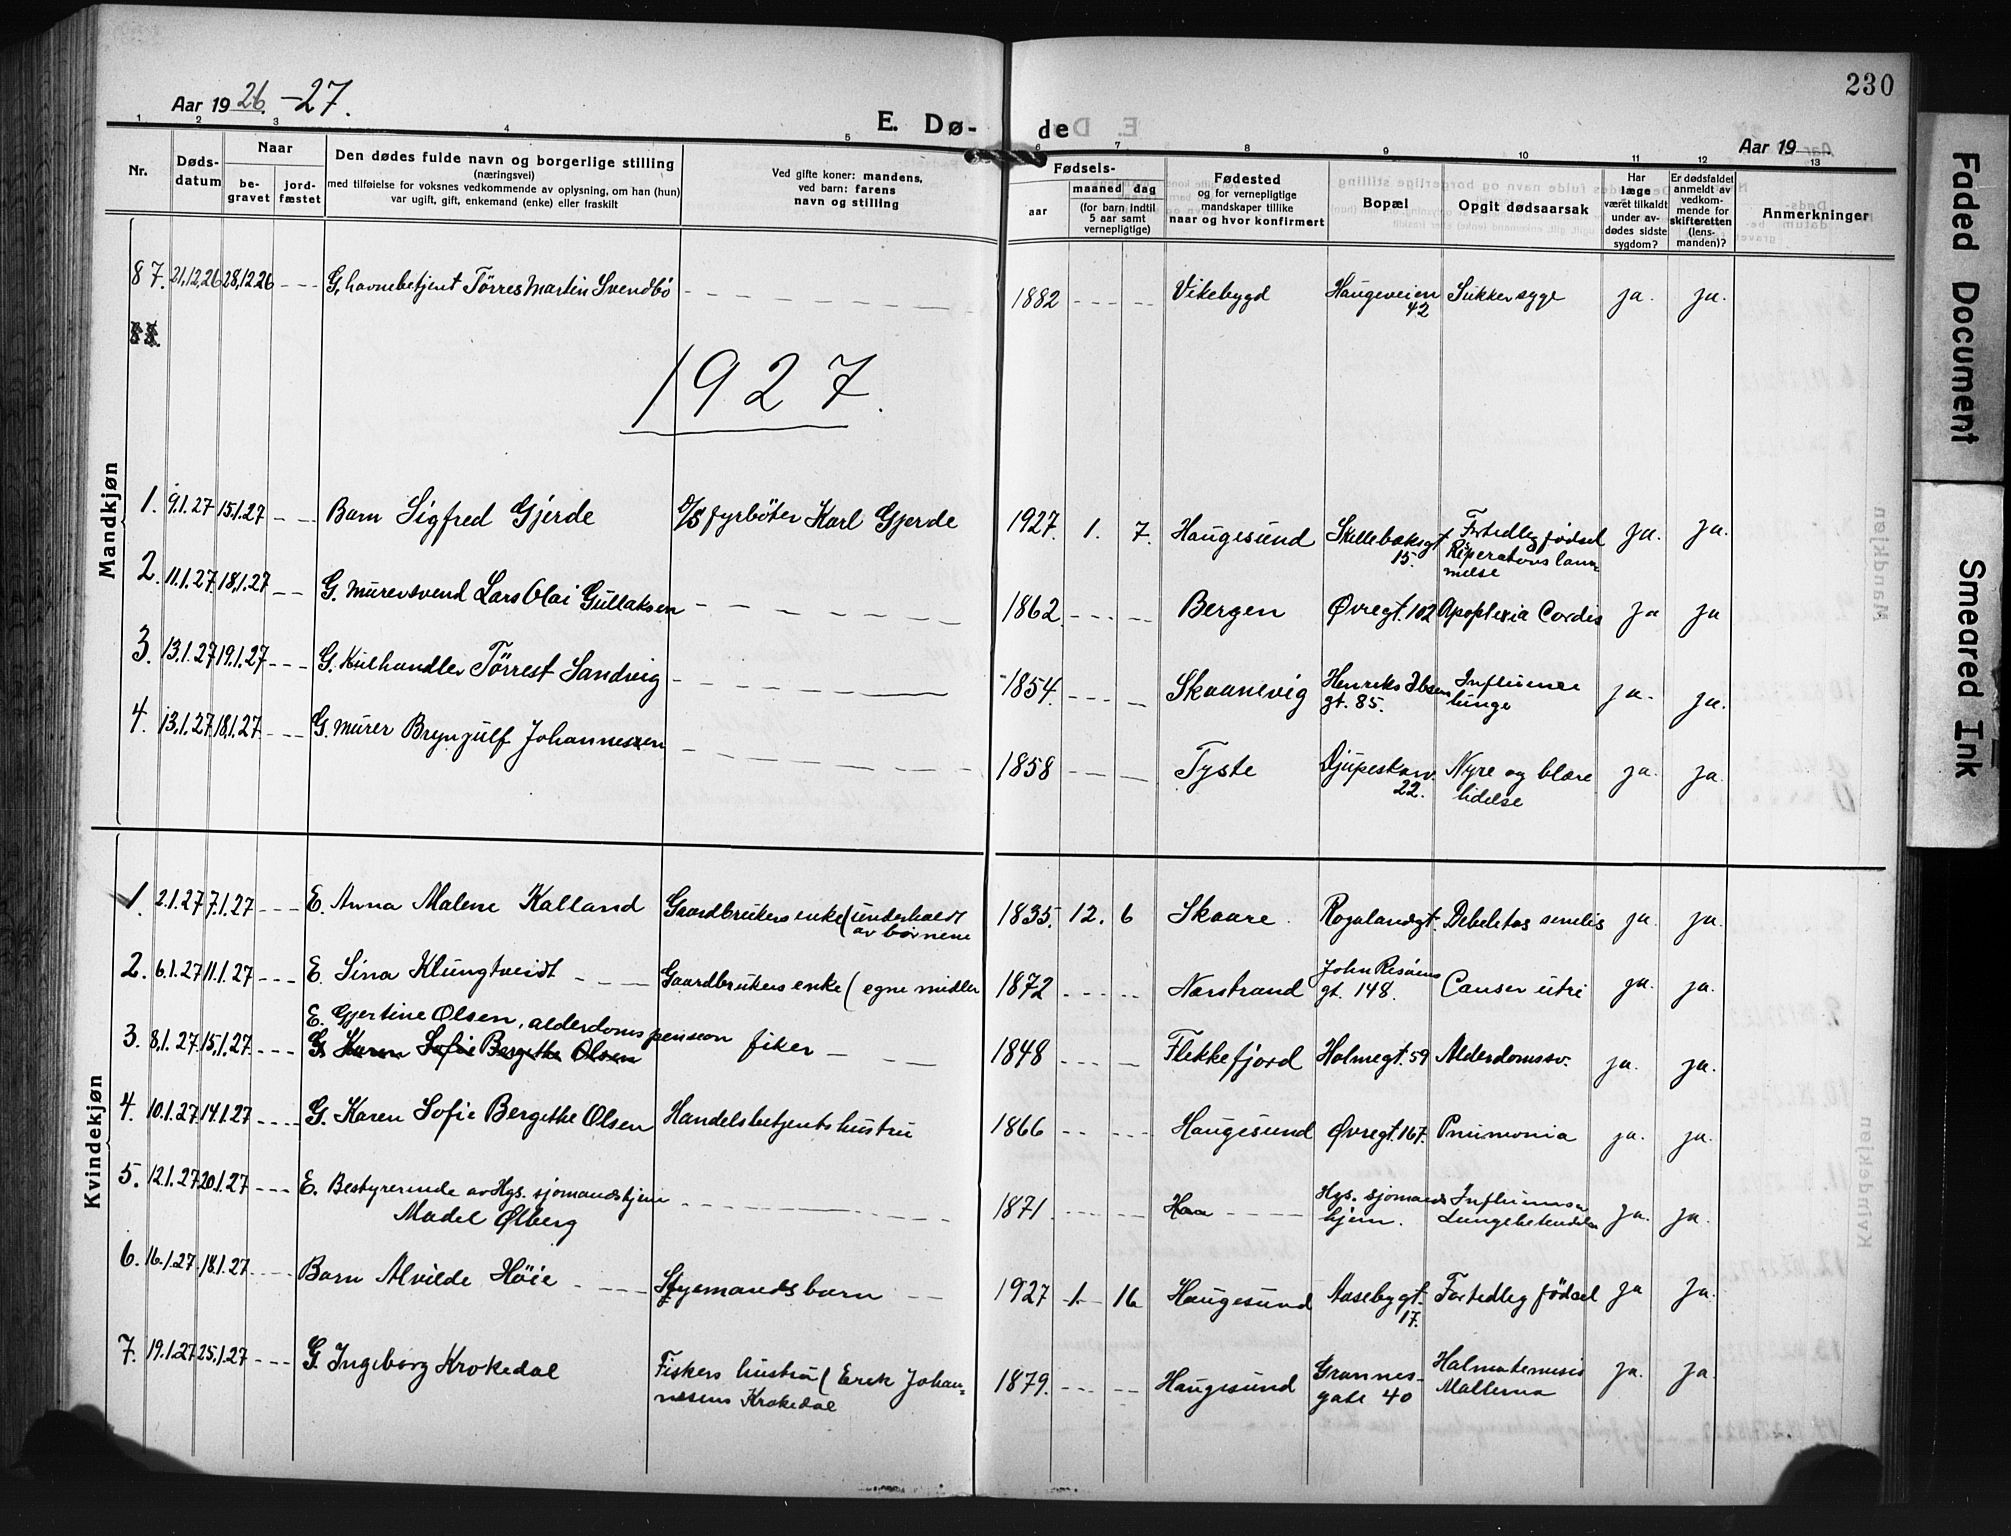 230
Aar 1926.-27.
E. Dø- de
Aar 19
1 2 3 4 5 6 7 8 9 10 11 12 13
Nr.
Døds-
datum
Naar
be-
gravet
jord-
fæstet
Den dødes fulde navn og borgerlige stilling
(næringsvei)
med tilføielse for voksnes vedkommende av oplysning, om han (hun)
var ugift, gift, enkemand (enke) eller fraskilt
Ved gifte koner: mandens,
ved barn: farens
navn og stilling
Fødsels-
aar
maaned dag
(for barn indtil
5 aar samt
vernepligtige)
Fødested
og for vernepligtige
mandskaper tillike
naar og hvor konfirmert
Bopæl
Opgit dødsaarsak
Har
læge
været tilkaldt
under av-
dødes sidste
sygdom?
Er dødsfaldet
anmeldt av
vedkom-
mende for
skifteretten
(lens-
manden)?
Anmerkninger
Mandkjøn
87. 21,12,26 28,12 26 - - - G. havnebetjent Tørres Martin Svendbø 1882 Vikebygd Haugeveien 42 Sukkersyge ja. ja.
1927.
1. 9.1.27 15.1.27 - - - Barn Sigfred Gjerde D/S fyrbøter Karl Gjerde 1927. 1. 7. Haugesund Skillebæksgt 15. Fortidlig fødsel ja. ja.
2. 11.1.27 18,1.27 - - - G. Mursvend Lars Olai Gullaksen 1862. Bergen Øvregt. 102 Apoplexia Cordis ja ja
3. 13.1.27 19.1.27 - - - G. Kulhandler Tørrest Sandvig 1854. Skaanevig Henriks Ibsen gt. 85. ja. ja.
4. 13.1.27 18,1.27 - - - G. Murer Bryngulf Johannessen 1858 Tyste Djupesk.v. 22. Nyre og blære lidelse ja. ja.
Kvindekjøn
1. 2.1.27 7.1.27 - - - E. Anna Malene Kalland Gaardbrukers enke (underholdt av børnene 1835. 12. 6 Skaare. Rogalandgt. Debeletas senelis ja. ja.
2. 6.1.27 11.1.27 - - - E. Sina Klungtveidt Gaardbrukers enke (egne midler 1872 Narstrand John Risøens gt. 148. Canser utri ja. ja.
E. Gjertine Olsen, alderdoms pension
3. 8.1.27 15.1.27 - - - G. Karen Sofie Bergithe Olsen fiker 1848 Flekkefjord Holmegt. 59 Alderdomssv. ja. ja.
4. 10.1.27 14.1.27 - - - G. Karen Sofie Bergithe Olsen Handelsbetjents hustru 1866 Haugesund Øvregt. 167. Pnumonia ja. ja.
5. 12.1.27 20.1.27 - - - E. Bestyrerinde av Hgs. sjømandshjem Madel Ølberg 1871. Haa Hgs. sjømands hjem. ja. ja.
6. 16.1.27 18.1.27 - - - Barn Alvilde Høie Styrmands barn 1927 1. 16 Haugesund Aasebygt. 17. Fortidlig fødsel ja ja.
7. 19.1.27 25.1.27 - - - G. Ingeborg Krokedal Fiskers hustru (Erik Johan-
nesens Krokedal 1879. Haugesund Grønnes-
gate 40 ja. ja.
Faded Document
Smeared Ink